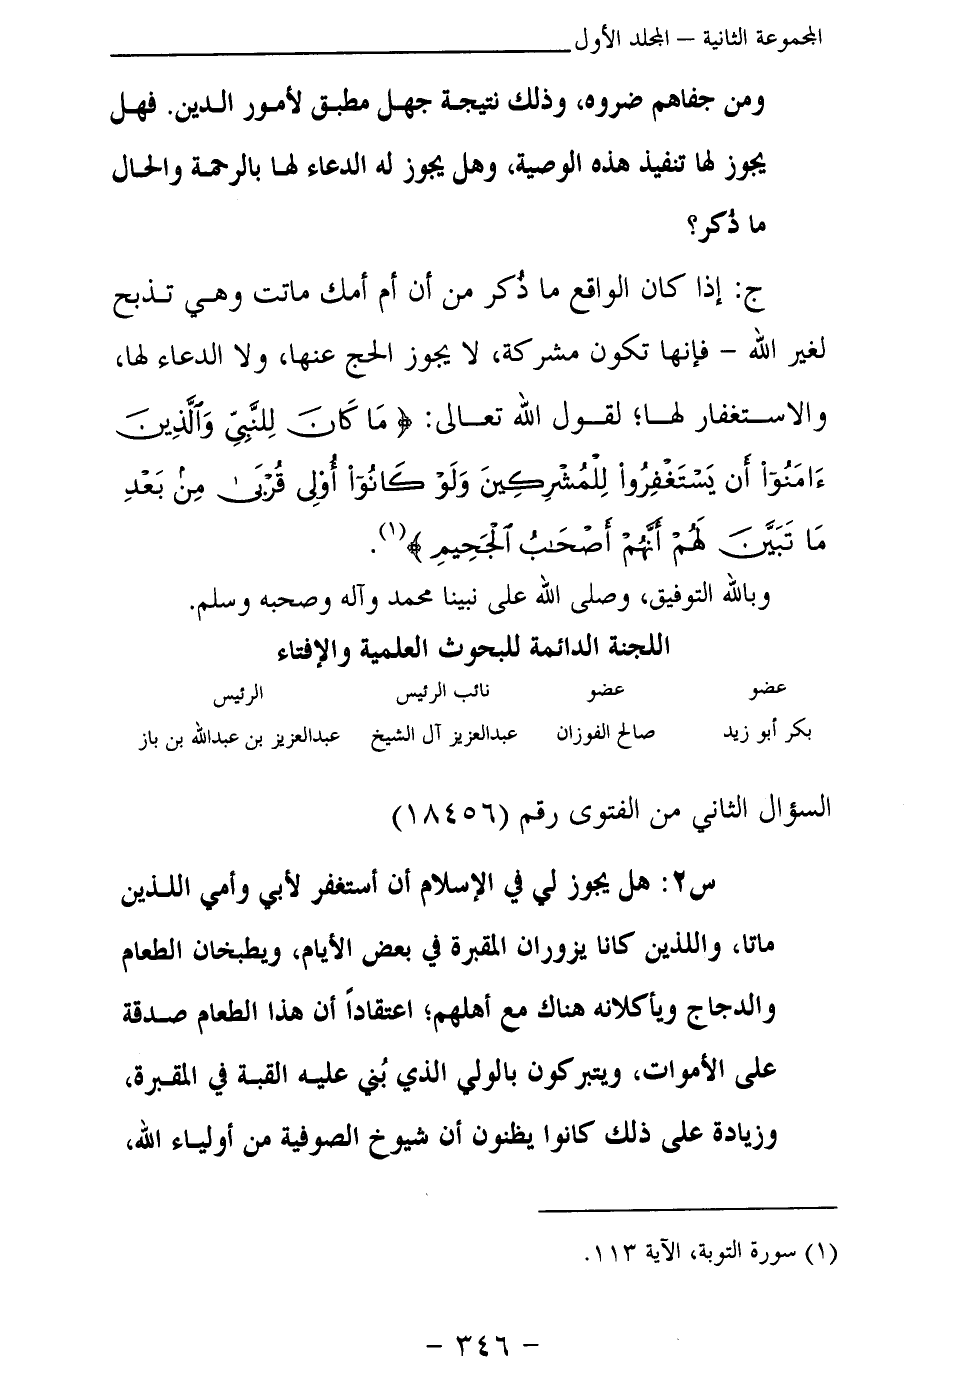 المجموعة الثانية – المجلد الأول
ومن جفاهم ضروه، وذلك نتيجة جهل مطبق لأمور الدين. فهل
يجوز لها تنفيذ هذه الوصية، وهل يجوز له الدعاء لها بالرحمة والحال
ما ذُكر؟
ج: إذا كان الواقع ما ذُكر من أن أم أمك ماتت وهي تذبح
لغير الله – فإنها تكون مشركة، لا يجوز الحج عنها، ولا الدعاء لها،
والاستغفار لها؛ لقول الله تعالى: ﴿ مَا كَانَ لِلنَّبِيِّ وَٱلَّذِينَ
ءَامَنُوٓا۟ أَن يَسْتَغْفِرُوا۟ لِلْمُشْرِكِينَ وَلَوْ كَانُوٓا۟ أُو۟لِى قُرْبَىٰ مِنۢ بَعْدِ
مَا تَبَيَّنَ لَهُمْ أَنَّهُمْ أَصْحَٰبُ ٱلْجَحِيمِ ﴾(١).
وبالله التوفيق، وصلى الله على نبينا محمد وآله وصحبه وسلم.
اللجنة الدائمة للبحوث العلمية والإفتاء
عضو عضو نائب الرئيس الرئيس
بكر أبو زيد صالح الفوزان عبدالعزيز آل الشيخ عبدالعزيز بن عبدالله بن باز
السؤال الثاني من الفتوى رقم (١٨٤٥٦)
س٢: هل يجوز لي في الإسلام أن أستغفر لأبي وأمي اللذين
ماتا، واللذين كانا يزوران المقبرة في بعض الأيام، ويطبخان الطعام
والدجاج ويأكلانه هناك مع أهلهم؛ اعتقاداً أن هذا الطعام صدقة
على الأموات، ويتبركون بالولي الذي بُني عليه القبة في المقبرة،
وزيادة على ذلك كانوا يظنون أن شيوخ الصوفية من أولياء الله،
(١) سورة التوبة، الآية ١١٣.
– ٣٤٦ –